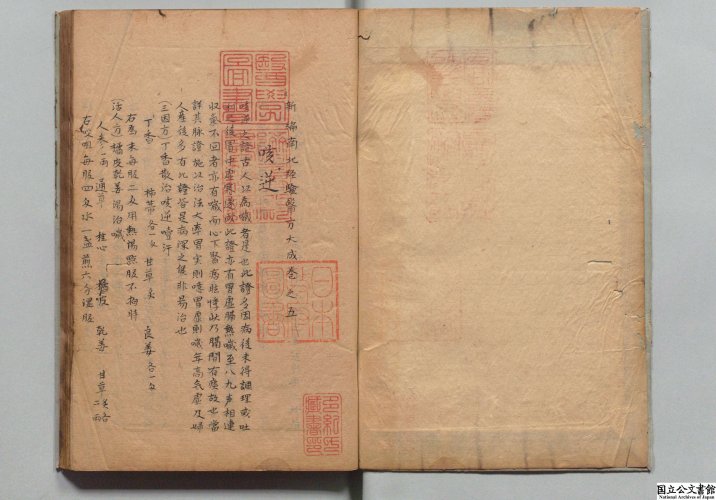 新編南北經驗醫方大成卷之五
咳逆
咳逆之證古人以為噦者是也此證多因病後未得調理或吐
利之後胃中虛寒遂成此證亦有胃虛膈熱噦至八九声相連
收氣不回者亦有噦而心下堅痞眩悸此乃膈間有痰故也當
詳其脉證施以治法大率胃实則噫胃虛則噦年高气虛及婦
人產後多有此證皆是病深之候非易治也
(三因方)丁香散治咳逆噎汗
丁香 柿蒂各一 甘草炙 良姜各
右為末每服二 用熱湯點服不拘時
(活人方)橘皮乾姜湯治噦
人参一兩 通草 桂心 橘皮 乾姜 甘草炙各二兩
右㕮咀每服四 水一盞煎六分温服
日本
國立公文書館
National Archives of Japan